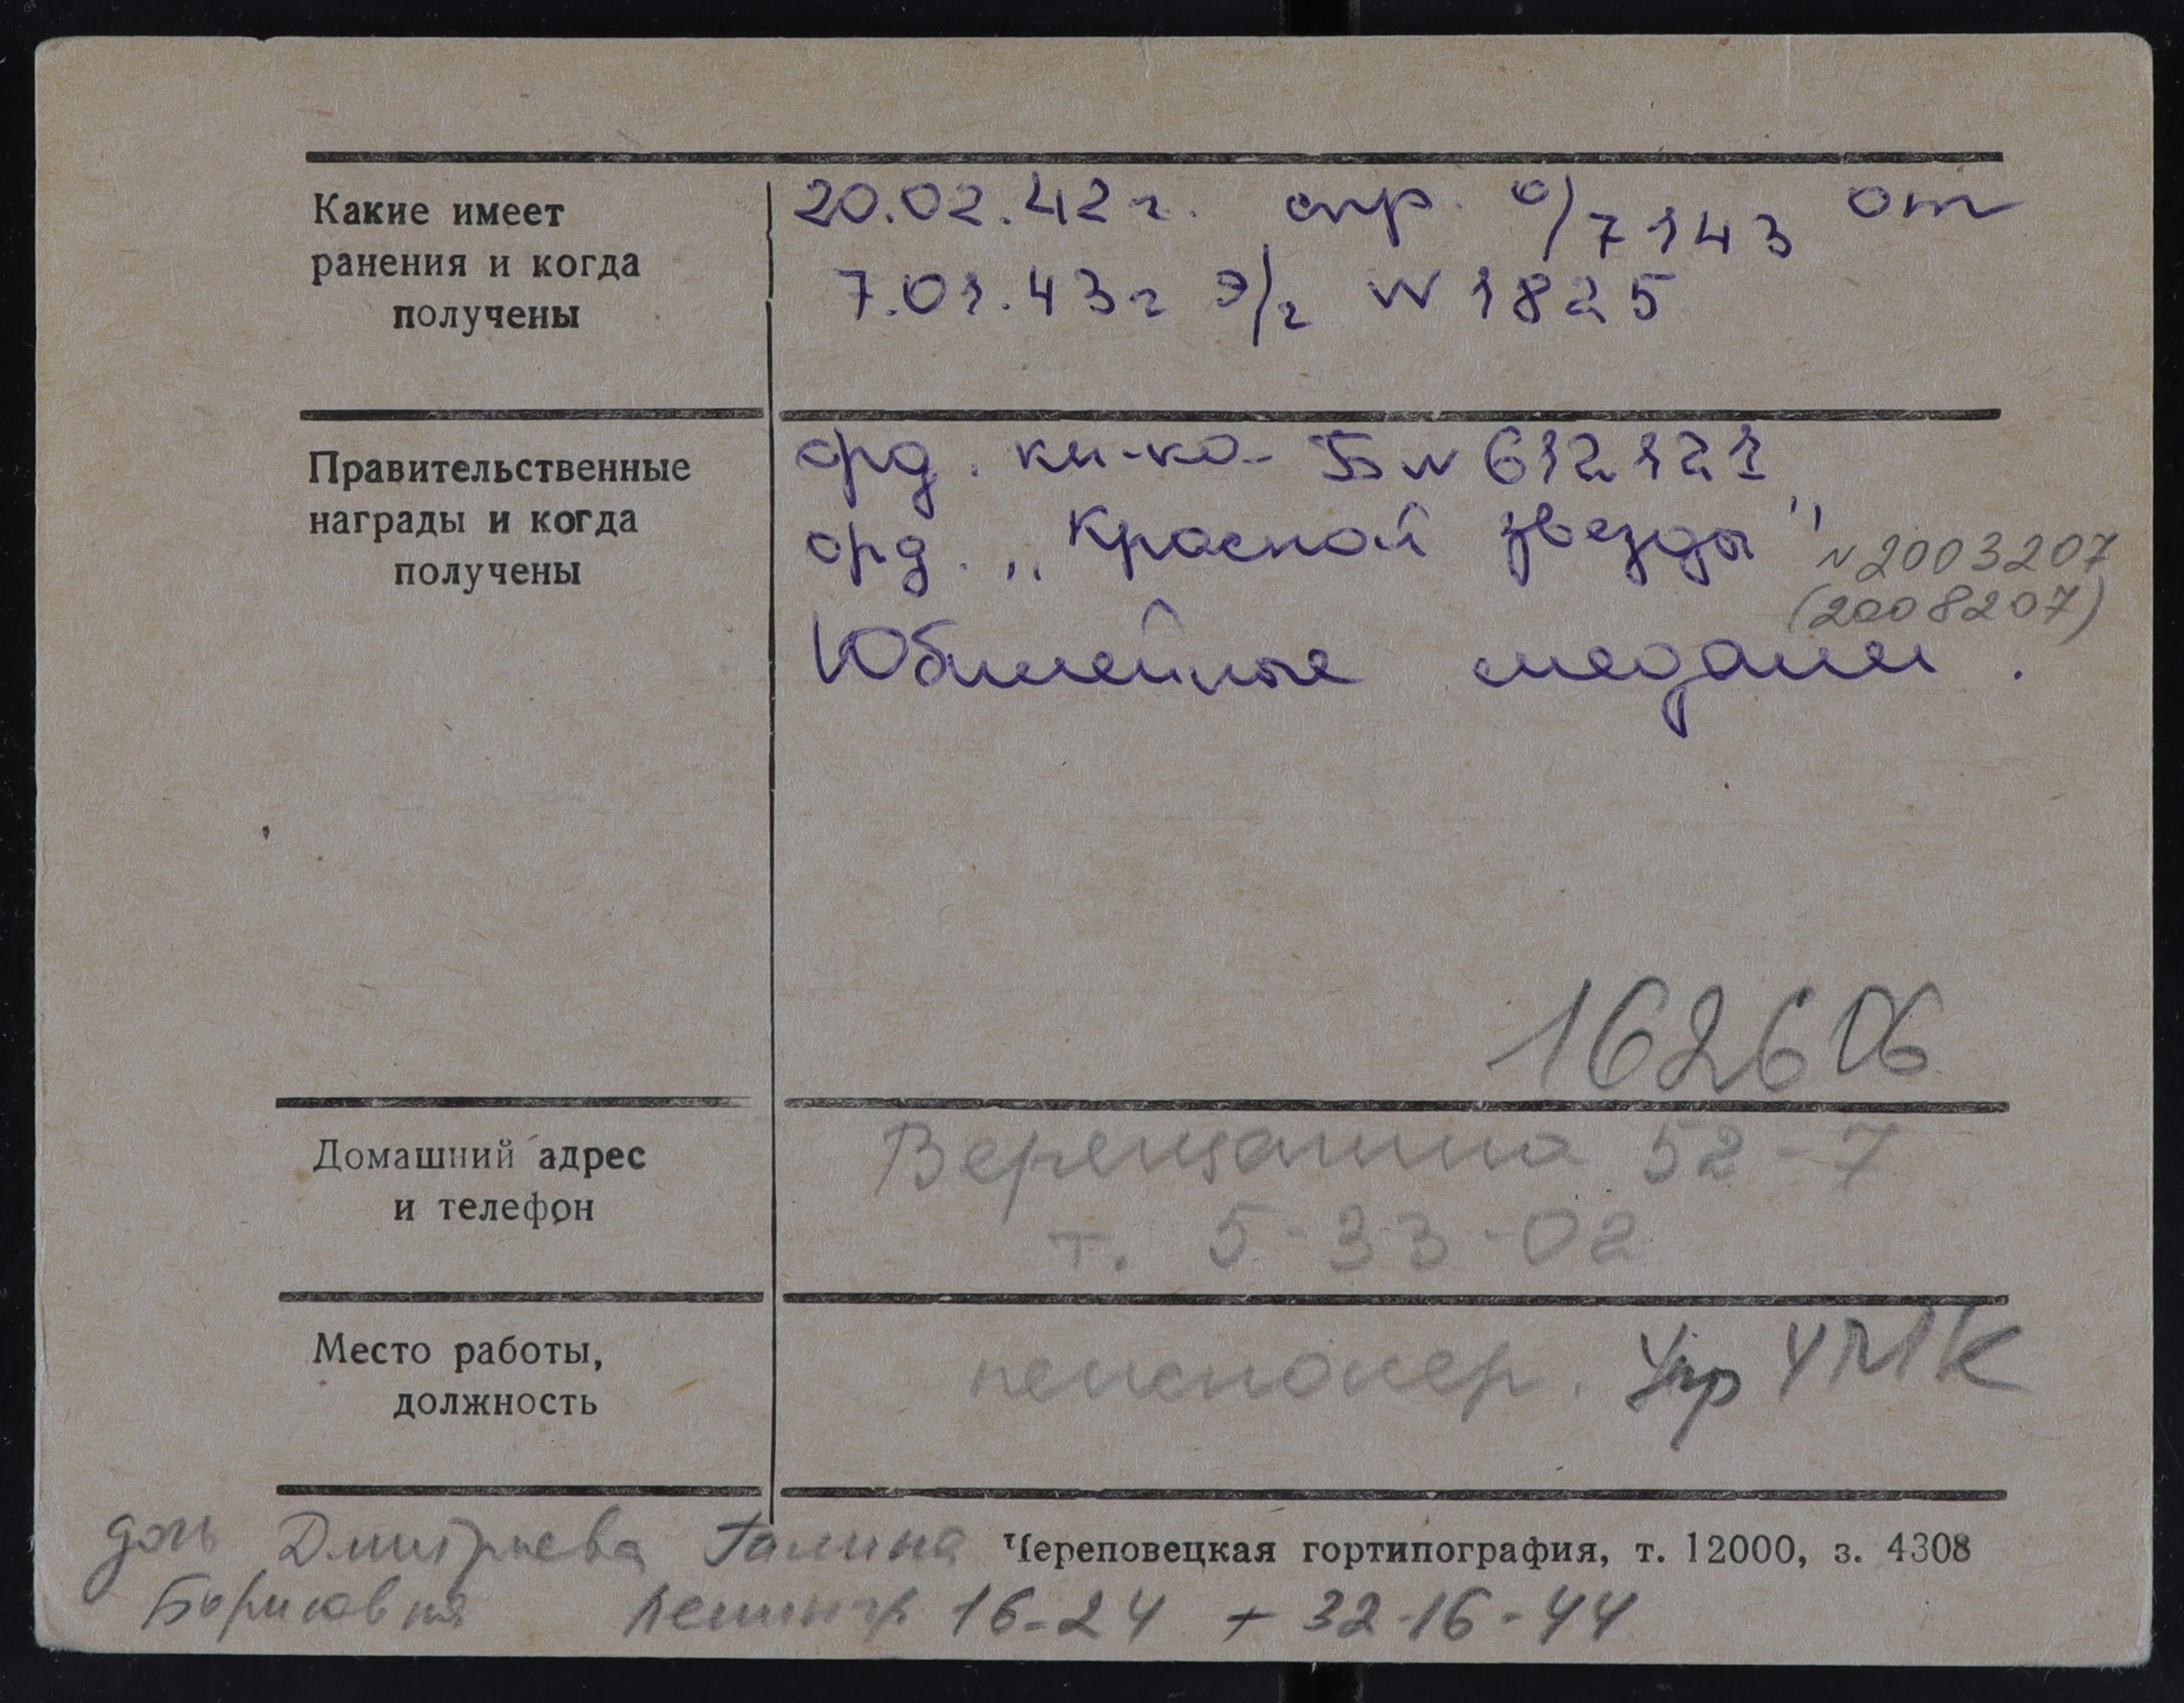 Какие имеет
ранения и когда
получены
20.02.42 г. спр. о/7143 от
7.01.43 г э/г N 1825
Правительственные
награды и когда
получены
орд. кн-ка- Б N 612121
орд. „Красной звезды" N 2003207
(2008207)
Юбилейные медали.
162606
Домашний адрес
и телефон
Верещагина 52-7
т. 5-33-02
Место работы,
должность
пенсионер. Упр ЧМК
дочь Дмитриева Галина
Борисовна Ленингр 16-24 т 32-16-44
Череповецкая гортипография, т. 12000, з. 4308